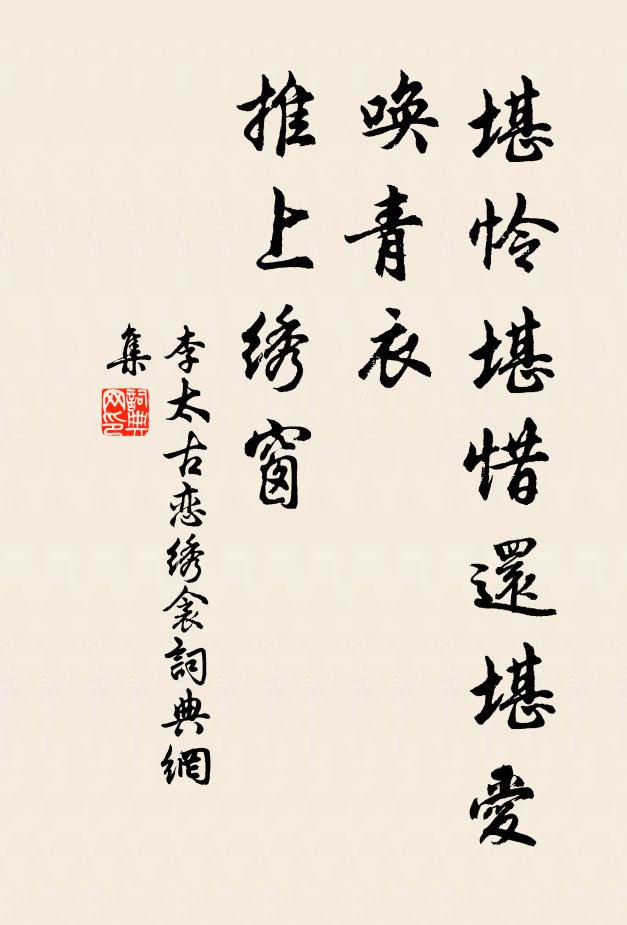 堪怜堪惜還堪愛
唤青衣
推上绣窗
李太古恋绣衾詞典網
集
詞典
网印